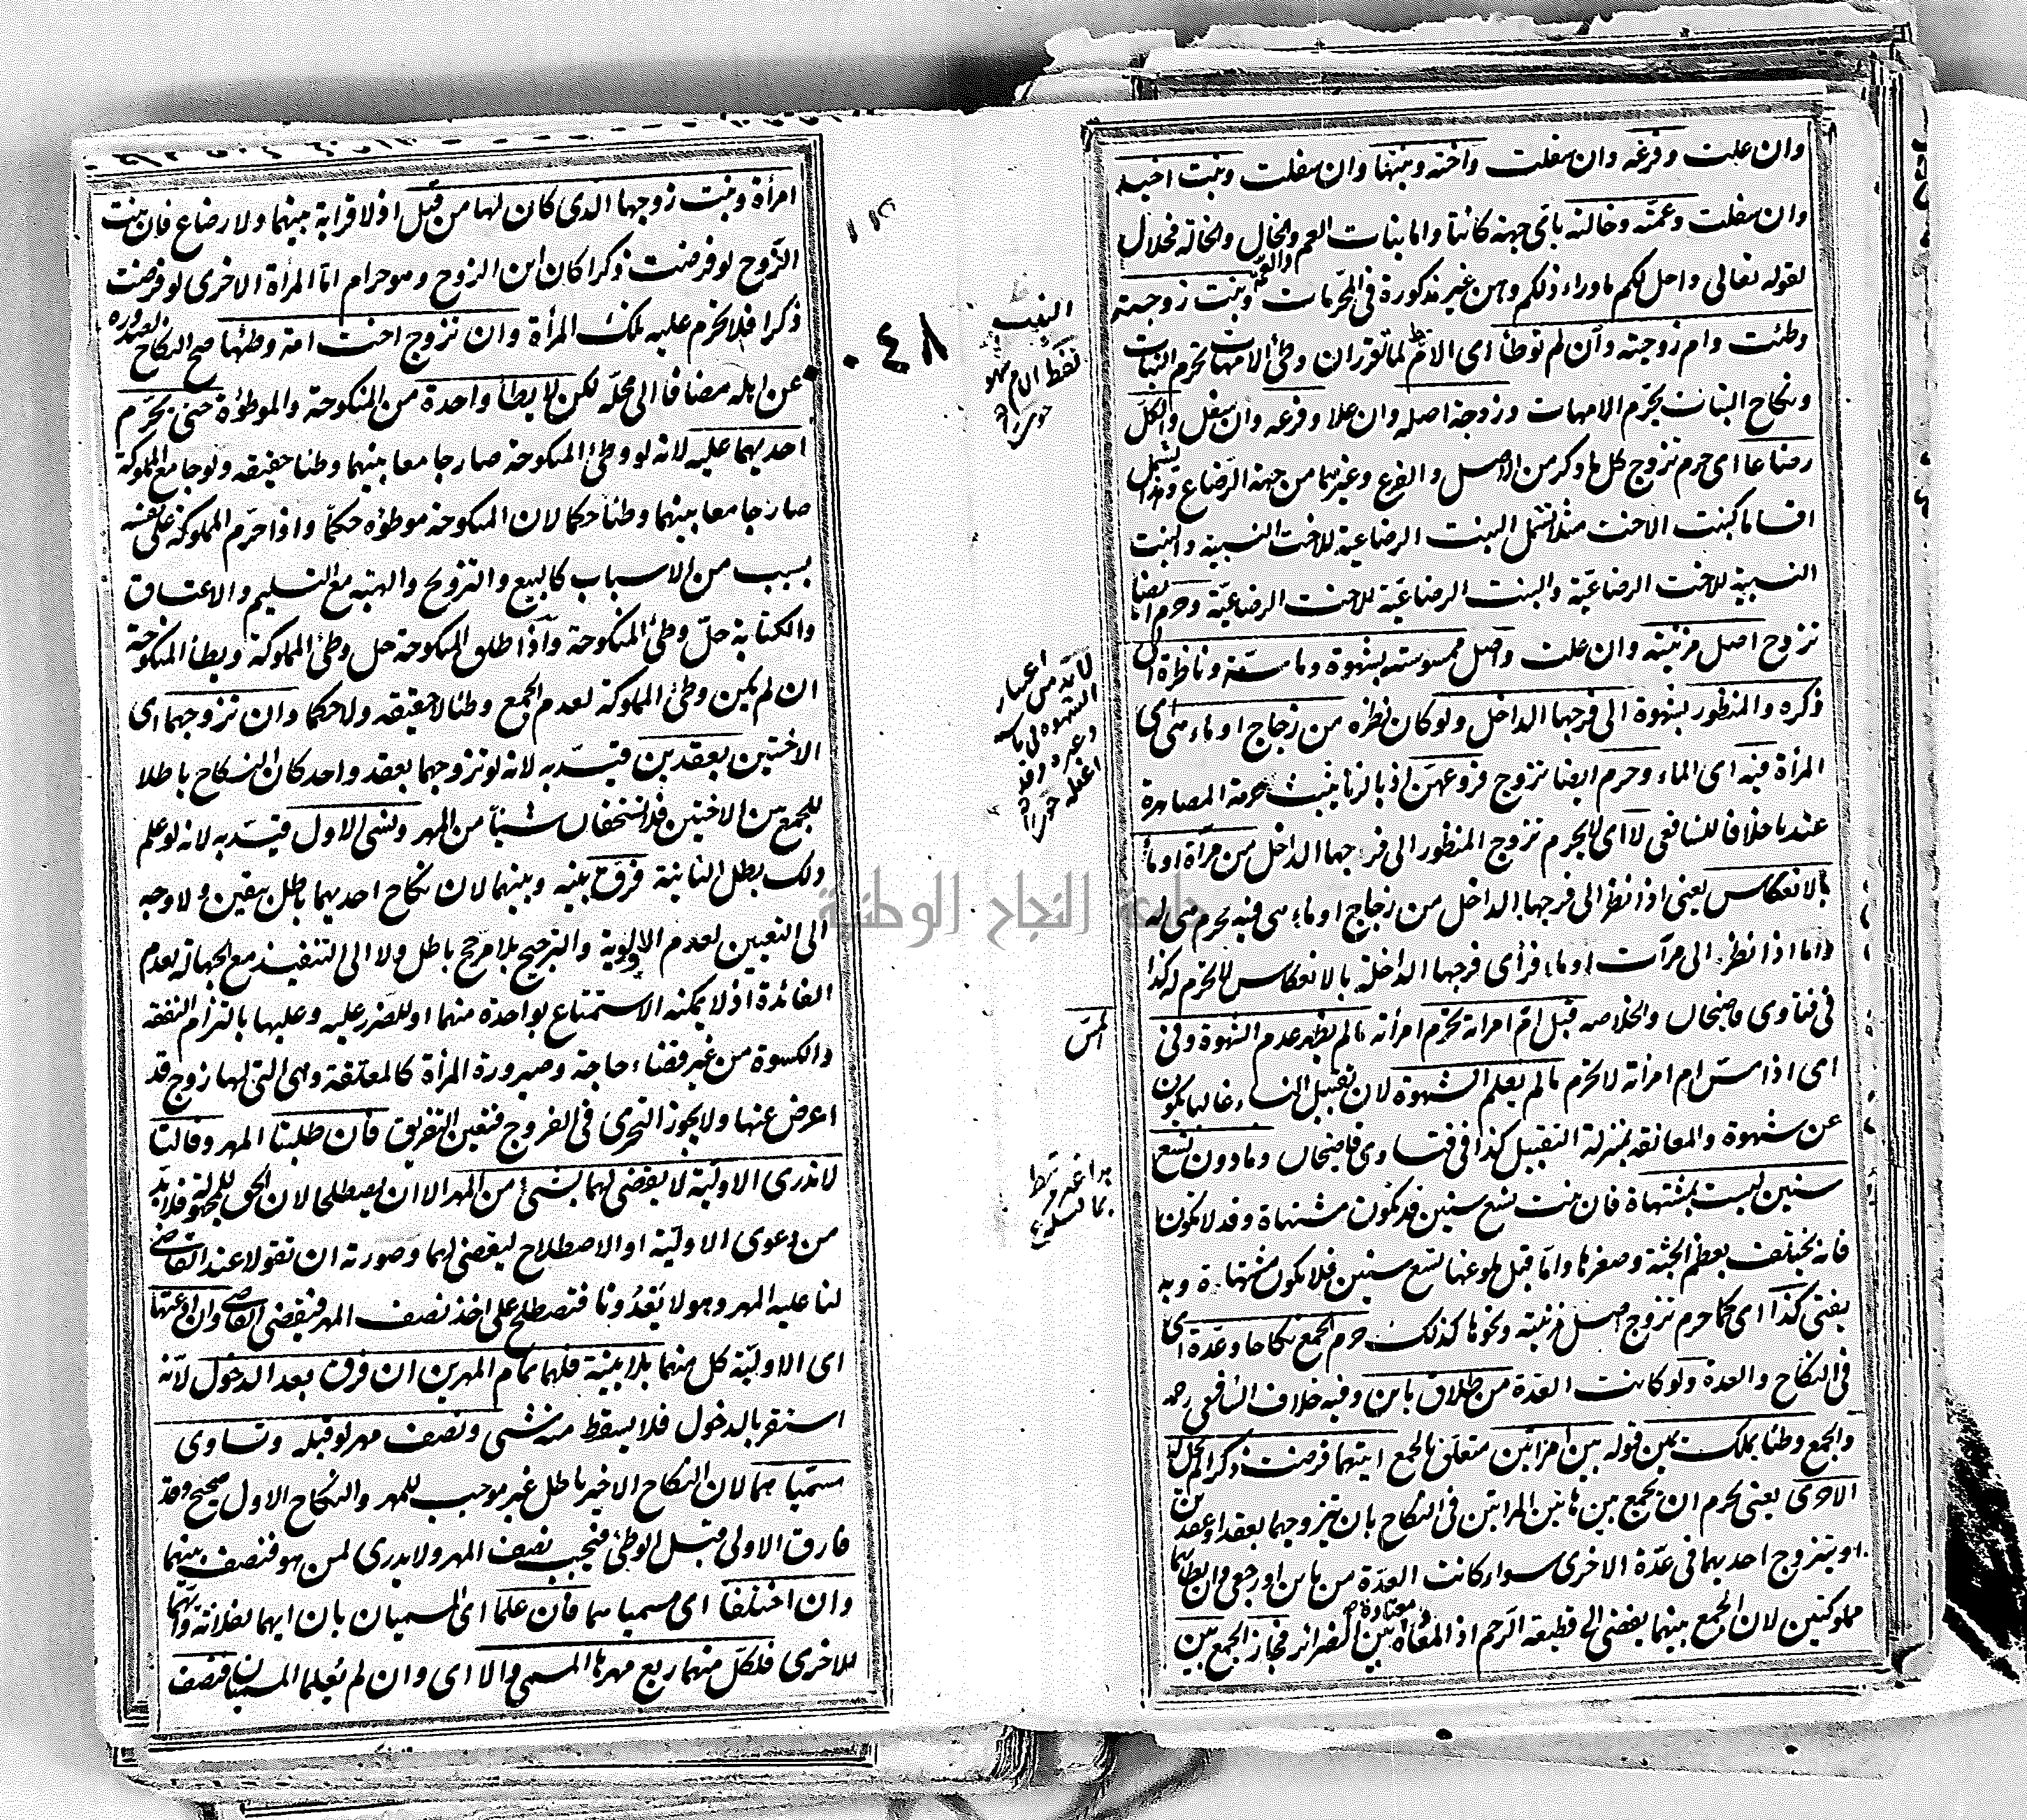 وان علت وفرعه وان سفلت واخته وبنتها وان سفلت وبنت اخيه
وان سفلت وعمته وخالته باى جهة كانتا واما بنات العم والخال والعمة والخالة فحلال
لقوله تعالى واحل لكم ما وراء ذلكم وهن غير مذكورة فى المحرمات وبنت زوجته
وطئت وام زوجته وان لم توطأ اى الام لما تقرر ان وطئ الامهات يحرم البنات
ونكاح البنات يحرم الامهات وزوجة اصله وان علا وفرعه وان سفل والكل
رضاعا اى حرم تزوج كل ما ذكر من الاصل والفرع وغيرهما من جهة الرضاع وهذا يشمل
اقساما كبنت الاخت مثلا تشمل البنت الرضاعية للاخت النسبية والبنت
النسبية للاخت الرضاعية والبنت الرضاعية للاخت الرضاعية وحرم ايضا
تزوج اصل مزنيته وان علت واصل ممسوسته بشهوة وماسته وناظرة الى
ذكره والمنظور بشهوة الى فرجها الداخل ولو كان نظره من زجاج او ماء هى اى
المرأة فيه اى الماء وحرم ايضا تزوج فروعهن اذ بالزنا يثبت حرمة المصاهرة
عندنا خلافا للشافعى لا اى لا يحرم تزوج المنظور الى فرجها الداخل من مرآة او ماء
بالانعكاس يعنى اذا نظر الى فرجها الداخل من زجاج او ماء هى فيه يحرم هى له
واما اذا نظر الى مرآت او ماء فرأى فرجها الداخلة بالانعكاس لا يحرم له كذا
فى فتاوى قاضيخان والخلاصه قبل ام امراته تحرم امرأته ما لم يظهر عدم الشهوة وفى
المس
اى اذا مس ام امرأته لا تحرم ما لم يعلم الشهوة لان تقبيل النساء غالبا يكون
عن شهوة والمعانقه بمنزلة التقبيل كذا فى فتاوى قاضيخان وما دون تسع
سنين ليست بمشتهاة فان بنت تسع سنين قد تكون مشتهاة وقد لا تكون
فانه يختلف بعظم الجثة وصغرها واما قبل بلوغها تسع سنين فلا تكون مشتهاة وبه
يفتى كذا اى كما حرم تزوج اصل مزنيته ونحوها كذلك حرم الجمع نكاحا وعدة اى
فى النكاح والعدة ولو كانت العدة من طلاق باين وفيه خلاف الشافعى رحمه
والجمع وطئا بملك يمين قوله بين امرأتين متعلق بالجمع ايتهما فرضت ذكرا لم تحل له
الاخرى يعنى يحرم ان يجمع بين هاتين المراتين فى النكاح بان يتزوجهما بعقد او عقدين
او يتزوج احديهما فى عدة الاخرى سواء كانت العدة من باين او رجعى وان يطأهما
مملوكتين لان الجمع بينهما يفضى الى قطيعة الرحم اذ المعاداة معتادة بين الضرائر فجاز الجمع بين
النسب
فقط الام سهو
لا بد من اعتبار
الشهوة فى
امرأة وبنت زوجها الذى كان لها من قبل اذ لا قرابة بينهما ولا رضاع فان بنت
الزوج لو فرضت ذكرا كان ابن الزوج وهو حرام اما المرأة الاخرى لو فرضت
ذكرا فلا يحرم عليه تلك المرأة وان تزوج اخت امة وطئها صح النكاح لصدوره
عن اهله مضافا الى محله لكن لا يطأ واحدة من المنكوحة والموطؤة حتى يحرم
احديهما عليه لانه لو وطئ المنكوحة صار جامعا بينهما وطئا حقيقه ولو جامع المملوكة
صار جامعا بينهما وطئا حكما لان المنكوحة موطؤه حكما واذا حرم المملوكة على نفسه
بسبب من الاسباب كالبيع والتزويج والهبة مع التسليم والاعتاق
والكتابة حل وطئ المنكوحة واذا طلق المنكوحة حل وطئ المملوكة ويطأ المنكوحة
ان لم يكن وطئ المملوكة لعدم الجمع وطئا لا حقيقه ولا حكما وان تزوجهما اى
الاختين بعقدين قيد به لانه لو تزوجهما بعقد واحد كان النكاح باطلا
للجمع بين الاختين فلا تستحقان شيئا من المهر ونسى الاول قيد به لانه لو علم
ذلك بطل الثانية فرق بينه وبينهما لان نكاح احديهما باطل بيقين ولا وجه
الى التعيين لعدم الاولوية والترجيح بلا مرجح باطل ولا الى التنفيذ مع الجهالة لعدم
الفائدة اذ لا يمكنه الاستمتاع بواحدة منهما او للضرر عليه وعليها بالتزام النفقه
والكسوة من غير قضاء حاجة وصيرورة المرأة كالمعلقة وهى التى لها زوج قد
اعرض عنها ولا يجوز التحرى فى الفروج فتعين التفريق فان طلبتا المهر وقالتا
لا ندرى الاولية لا يقضى لهما بشئ من المهر الا ان يصطلحا لان الحق للمجهولة فلا بد
من دعوى الاولية او الاصطلاح ليقضى لهما وصورته ان تقولا عند القاضى
لنا عليه المهر وهو لا يعدونا فتصطلح على اخذ نصف المهر فيقضى القاضى وان ادعتها
اى الاولية كل منهما بلا بينة فلهما تمام المهرين ان فرق بعد الدخول لانه
استقر بالدخول فلا يسقط منه شئ ونصف مهر لو قبله وتساوى
مسمياهما لان النكاح الاخير باطل غير موجب للمهر والنكاح الاول صحيح وقد
فارق الاولى قبل الوطئ فيجب نصف المهر ولا يدرى لمن هو فتنصف بينهما
وان اختلفا اى مسمياهما فان علما اى المسميان بان ايهما لفلانة وايهما
للاخرى فلكل منهما ربع مهرها المسمى والا اى وان لم يعلما المسميان فنصف
١١٢
٠٤٨
جامعة النجاح الوطنية